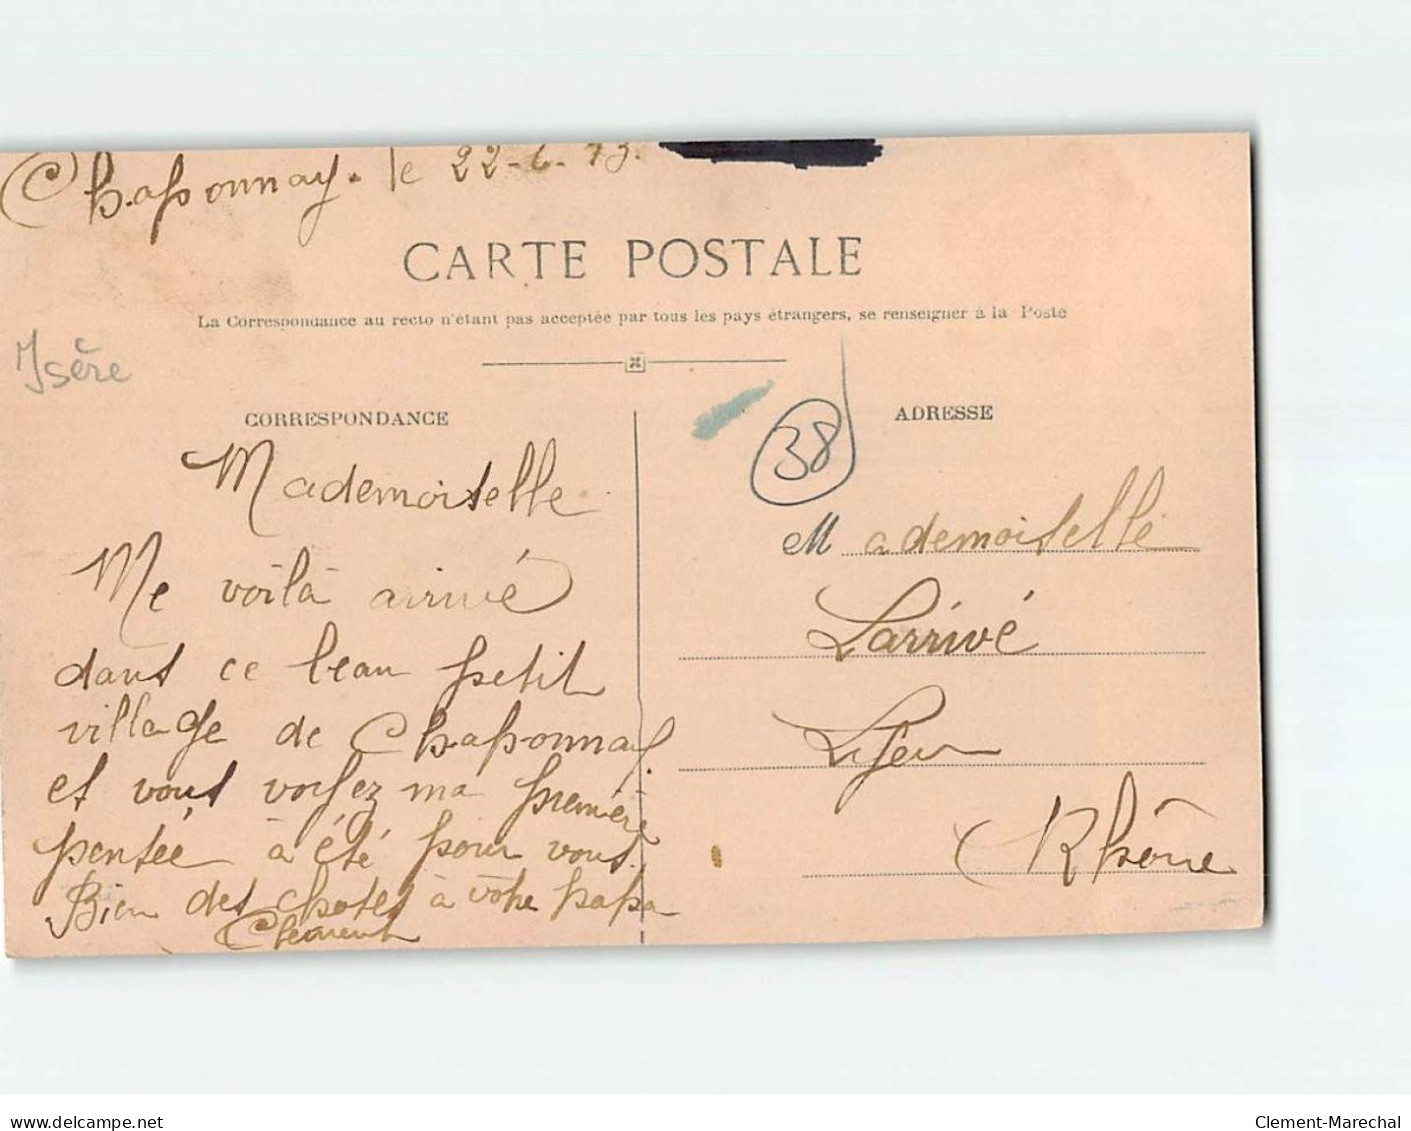 Chaponnay. le 22-6-13.
CARTE POSTALE
La Correspondance au recto n'étant pas acceptée par tous les pays étrangers, se renseigner à la Poste
Isère
CORRESPONDANCE
Mademoiselle
Me voilà arrivé
dans ce beau petit
village de Chaponnay
et vous voyez ma première
pensée à été pour vous.
Bien des choses à votre papa
Clement
38
ADRESSE
Mademoiselle
Larrivé
Rhône
www.delcampe.net
Clement-Marechal